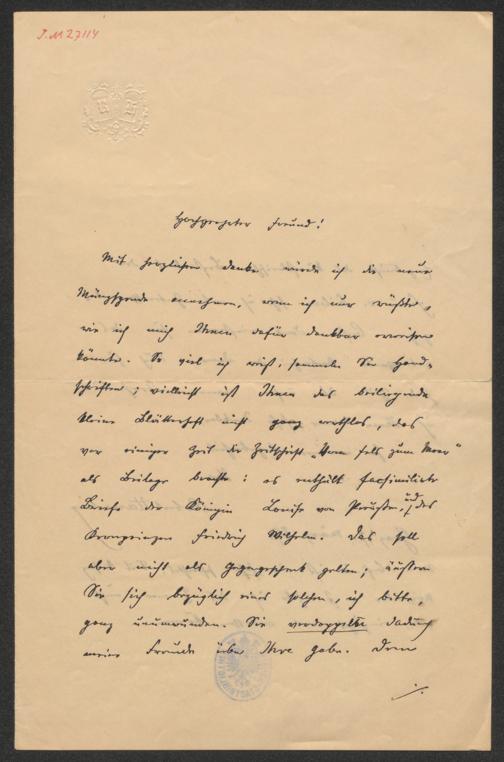 J.N 27114
Hochgeehrter Freund!
Mit herzlichem Danke würde ich die neue
Münzspende annehmen, wenn ich nur wüßte,
wie ich mich Ihnen dafür dankbar erweisen
könnte. So viel ich weiß, sammeln Sie Hand-
schriften; vielleicht ist Ihnen das beiliegende
kleine Blätterheft nicht ganz werthlos, das
vor einiger Zeit die Zeitschrift „Vom Fels zum Meer“
als Beilage brachte: es enthält facsimilirte
Briefe der Königin Louise von Preußen, und des
Kronprinzen Friedrich Wilhelm. Das soll
aber nicht als Gegengeschenk gelten; äußern
Sie sich bezüglich eines solchen, ich bitte,
ganz unumwunden. Sie verdoppeln dadurch
meine Freude über Ihre Gabe. Denn